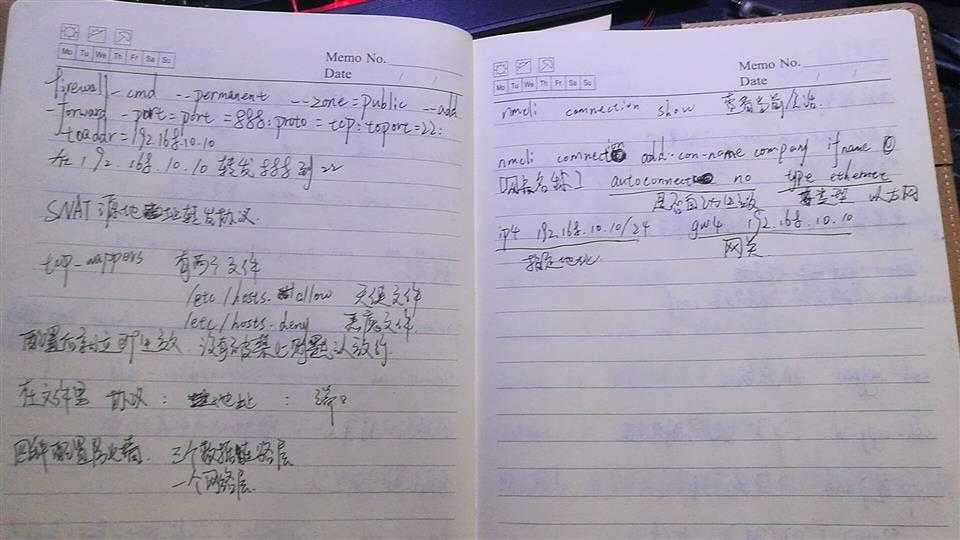 Mo Tu We Th Fr Sa Su
Memo No.
Date / /
firewall-cmd --permanent --zone=public --add
-forward-port=port=888:proto=tcp:toport=22:
toaddr=192.168.10.10
在192.168.10.10 转发888到22
SNAT 源地址转发协议
tcp_wappers 有两个文件
/etc/hosts.allow 天使文件
/etc/hosts.deny 恶魔文件
配置后立即生效 没有被禁止则默认放行
在文件里 协议 : 地址 :
四种配置 三个数据链路层
一个网络层
Mo Tu We Th Fr Sa Su
Memo No.
Date / /
nmcli connection show 查看
nmcli connect add con-name company ifname
[网卡名称] autoconnect no type ethernet
是否自动连接 类型 以太网
ip4 192.168.10.10/24 gw4 192.168.10.10
指定地址 网关